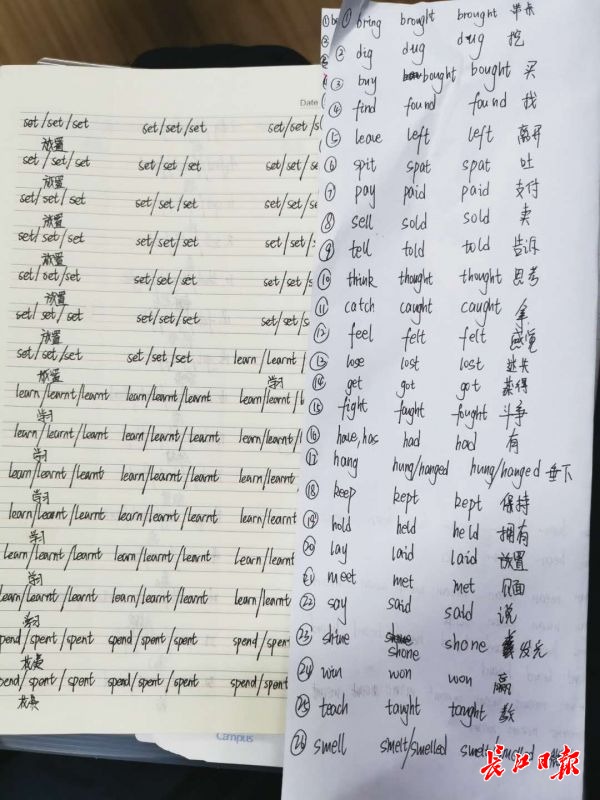 Date
set/set/set set/set/set set/set/s
放置
set/set/set set/set/set set/set/s
放置
set/set/set set/set/set set/set/s
放置
set/set/set set/set/set set/set/s
放置
set/set/set set/set/set set/set/s
放置
set/set/set set/set/set set/set/s
放置
set/set/set set/set/set learn/learnt/
放置 学习
learn/learnt/learnt learn/learnt/learnt learn/learnt/l
学习
learn/learnt/learnt learn/learnt/learnt learn/learnt/l
学习
learn/learnt/learnt learn/learnt/learnt learn/learnt
学习
learn/learnt/learnt learn/learnt/learnt learn/learnt
学习
learn/learnt/learnt learn/learnt/learnt learn/learnt
学习
learn/learnt/learnt learn/learnt/learnt learn/learnt
学习
spend/spent/spent spend/spent/spent spend/spent
花费
spend/spent/spent spend/spent/spent spend/spent/
花费
Campus
① bring brought brought 带来
② dig dug dug 挖
③ buy bought bought 买
④ find found found 找
⑤ leave left left 离开
⑥ spit spat spat 吐
⑦ pay paid paid 支付
⑧ sell sold sold 卖
⑨ tell told told 告诉
⑩ think thought thought 思考
⑪ catch caught caught 拿
⑫ feel felt felt 感觉
⑬ lose lost lost 迷失
⑭ get got got 获得
⑮ fight fought fought 斗争
⑯ have,has had had 有
⑰ hang hung/hanged hung/hanged 垂下
⑱ keep kept kept 保持
⑲ hold held held 拥有
⑳ lay laid laid 放置
㉑ meet met met 见面
㉒ say said said 说
㉓ shine shone shone 发光
㉔ win won won 赢
㉕ teach taught taught 教
㉖ smell smelt/smelled smelt/smelled
长江日报